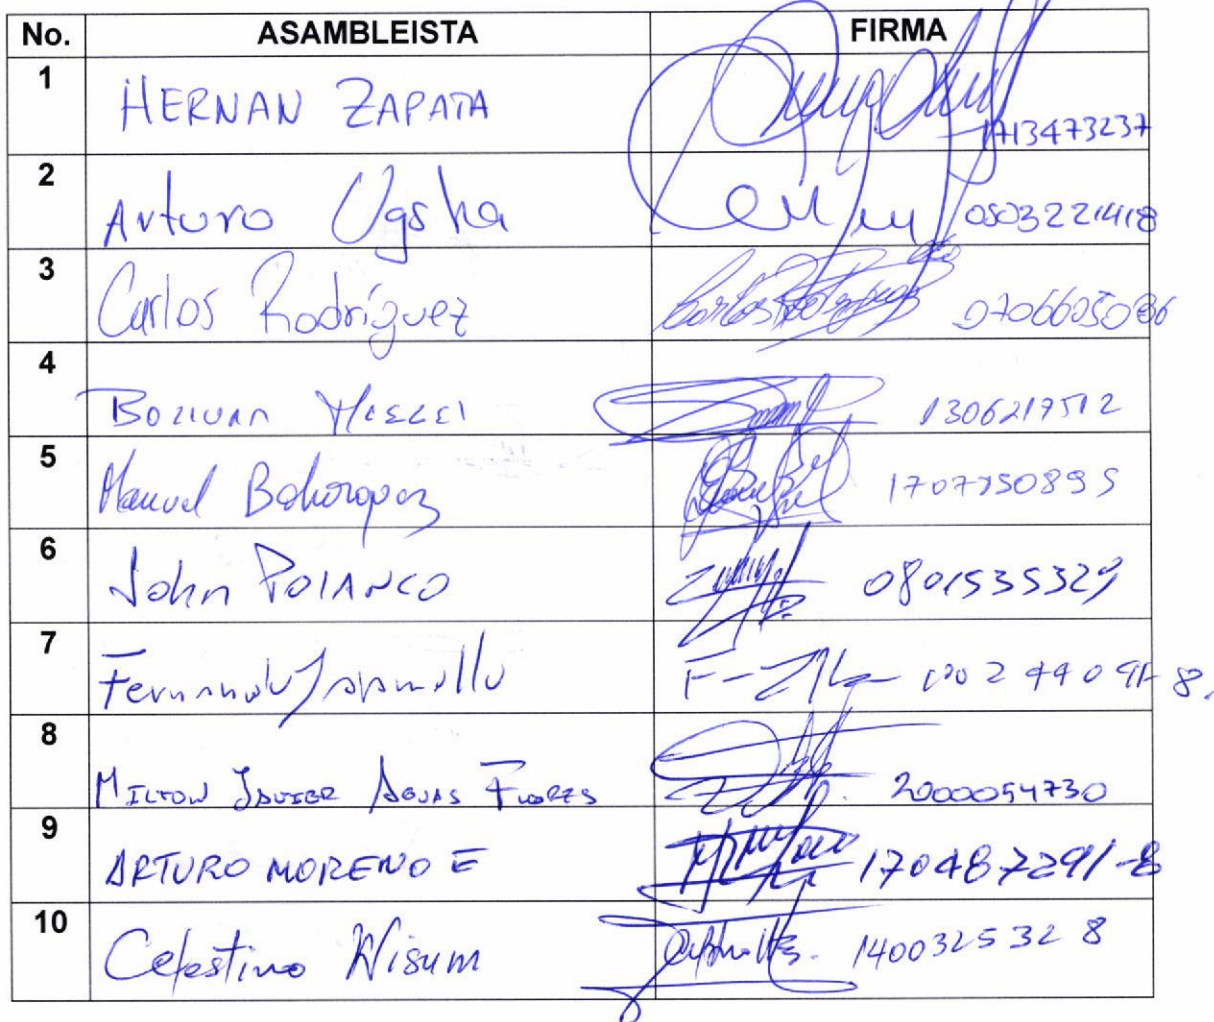 No. ASAMBLEISTA FIRMA
1 HERNAN ZAPATA 1713473237
2 Arturo Ugsha 0503221418
3 Carlos Rodríguez Carlos Rodríguez 0706605086
4 1306217512
5 Manuel Bohorquez 1707950895
6 John POLANCO 0801535329
7 Fernando Jaramillo 100244091-8.
8 MILTON JAVIER AGUAS FLORES 2000054730
9 ARTURO MORENO E 170487291-8
10 Celestino Wisum 140032532 8